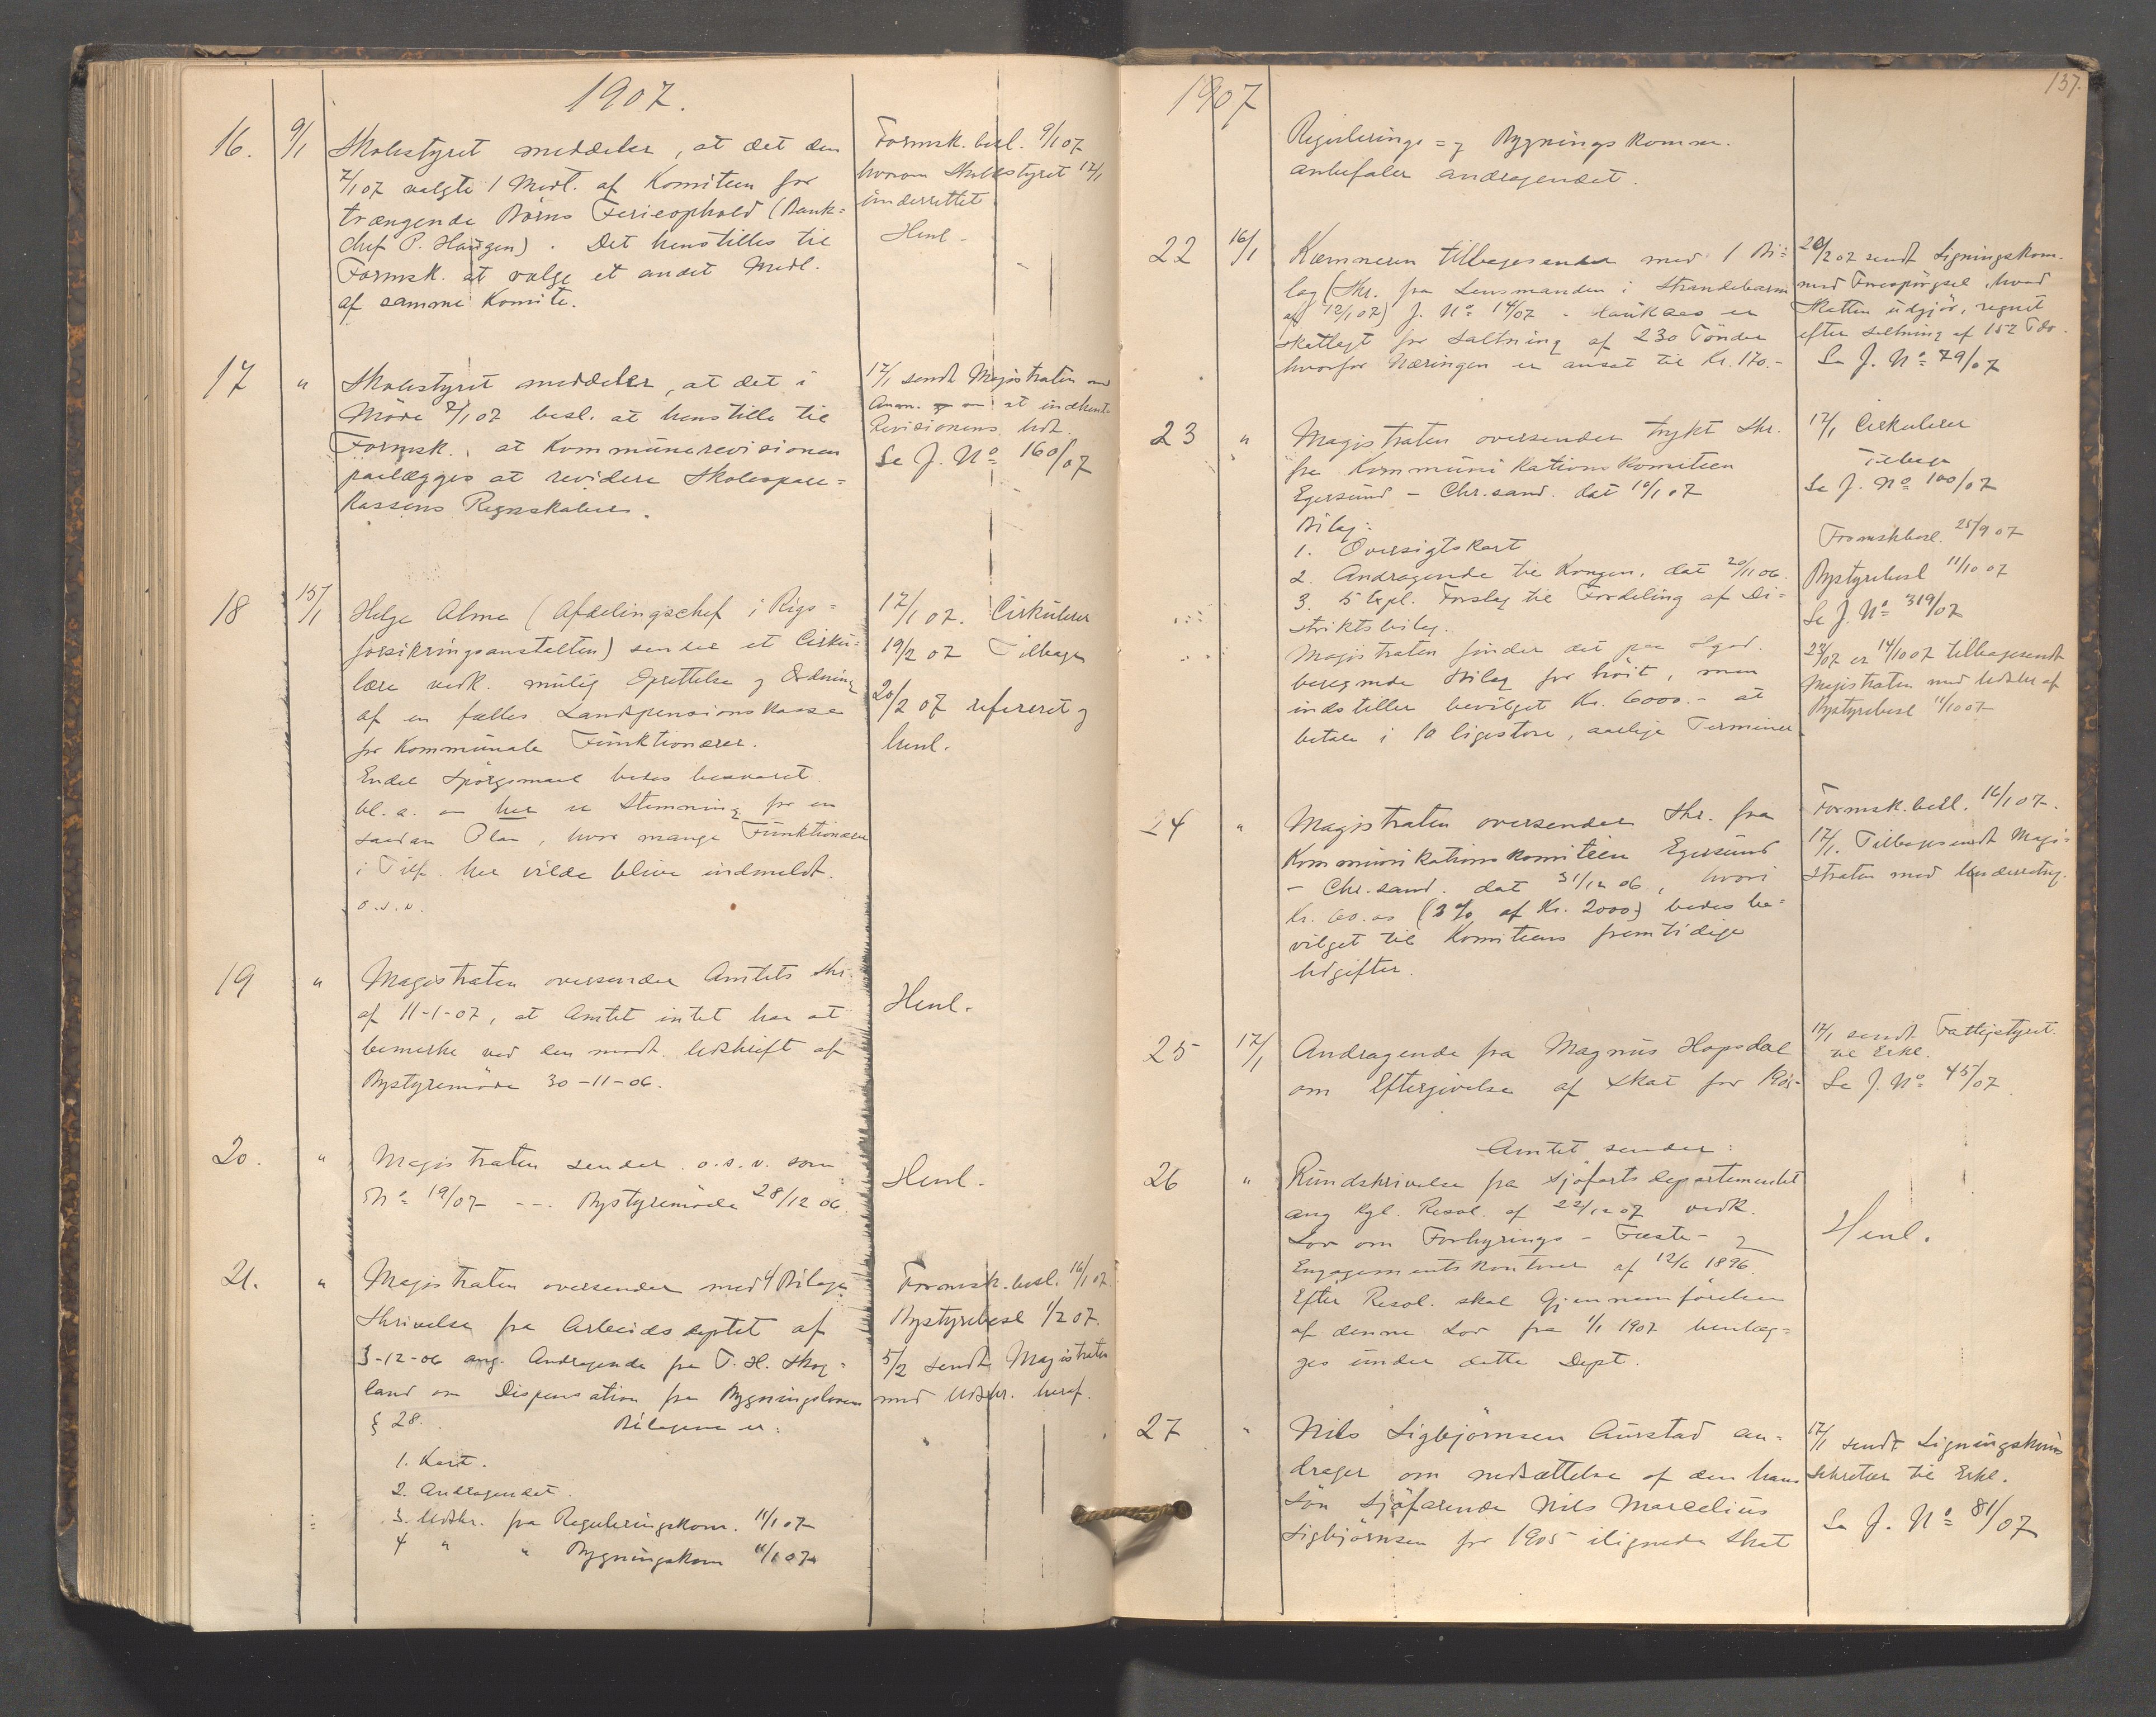 1907.
16. 9/1 Skolestyret meddeler, at det den
7/1 07 valgte 1 Medl. af Komiteen for
trængende Børns Ferieophold (Bank=
chef P. Haugen). Det henstilles til
Formsk. at vælge et andet Medl.
af samme Komite.
Formsk. besl. 9/1 07
hvorom Skolestyret 12/1
underrettet
Henl.
17 " Skolestyret meddeler, at det i
Møde 7/1 07 besl. at henstille til
Formsk., at Kommunerevisionen
paalægges at revidere Skolespare=
kassens Regnskaber.
17/1 sendt Magistraten
Anm. om at indhente
Revisionens Udt.
Se J. No 160/07
18 15/1 Helge Alme (Afdelingschef i Rigs=
forsikringsanstalten) sender et Cirku=
lære vedk. mulig Oprettelse og Ordning
af en fælles Landspensionskasse
for Kommunale Funktionærer.
Endel Spørgsmaal bedes besvaret
bl. a. om her er Stemning for en
saadan Plan, hvor mange Funktionærer
i Tilf. her vilde blive indmeldt.
o.s.v.
17/1 07. Cirkulerer
19/2 07 Tilbage
20/2 07 refereret og
henl.
19 " Magistraten oversender Amtets Skr.
af 11-1-07, at Amtet intet har at
bemerke ved den modt. Udskrift af
Bystyremøde 30-11-06.
Henl.
20. " Magistraten sender o.s.v. som
No 19/07 --- Bystyremøde 28/12 06.
Henl.
21. " Magistraten oversender med 4 Bilage
Skrivelse fra Arbeidsdeptet af
3-12-06 ang. Andragende fra T. H. Skog=
land om Dispensation fra Bygningsloven
§ 28. Bilagene er:
1. Kart.
2. Andragendet.
3. Udskr. fra Reguleringskom. 11/1 07
4 " " Bygningskom 11/1 07
Formsk. besl. 16/1 07.
Bystyrebesl 1/2 07.
5/2 sendt Magistraten
med Udskr. heraf.
137.
1907
Regulerings= og Bygningskomm.
anbefaler andragendet.
22 16/1 Kæmneren tilbagesender med 1 Bi=
lag (Skr. fra Lensmanden i Strandebarm
af 12/1 07) J. No 14/07 - Haukaas er
skatlagt for Saltning af 230 Tønder
hvorfor Næringen er ansat til Kr. 170.-
20/2 07 sendt Ligningskom.
med Forespørgsel, hvad
Skatten udgjør, regnet
efter Saltning af 152 Tdr.
Se J. No 79/07
23 " Magistraten oversender trykt Skr.
fra Kommunikationskomiteen
Egersund - Chr.sand. dat 10/1 07
Bilag:
1. Oversigtskart
2. Andragende til Kongen, dat 20/11 06.
3. 5 Expl. Forslag til Fordeling af Di=
striktsbilag.
Magistraten finder det paa Egd.
beregnede Bilag for høit, men
indstiller bevilget Kr. 6000.- at
betale i 10 ligestore, aarlige Terminer
17/1 Cirkulerer
Tilbage
Se J. No 100/07
Formskbesl. 25/9 07
Bystyrebesl 11/10 07
Se J. No 319/07
23/07 er 14/10 07 tilbagesendt
Magistraten med Udskr af
Bystyrebesl 11/10 07
24 " Magistraten oversender Skr. fra
Kommunikationskomiteen Egersund
- Chr.sand. dat 31/12 06, hvori
Kr. 60.00 (3% af Kr. 2000) bedes be=
vilget til Komiteens fremtidige
Udgifter.
Formsk. besl. 16/1 07.
17/1. Tilbagesendt Magi=
straten med Underretng.
25 17/1 Andragende fra Magnus Hopsdal
om Eftergivelse af Skat for 1905
17/1 sendt Fattigstyret.
til Erkl.
Se J. No 45/07
Amtet sender:
26 " Rundskrivelse fra Sjøfartsdepartementet
ang Kgl. Resol. af 22/12 07 vedk.
Lov om Forhyrings- Fæste- og
Engagementskontorer af 12/6 1896.
Efter Resol. skal Gjennemførelsen
af denne Lov fra 1/1 1907 henlæg=
ges under dette Dept.
Henl.
27 " Nils Sigbjørnsen Aurstad an=
drager om nedsættelse af den hans
Søn Sjøfarende Nils Marcelius
Sigbjørnsen for 1905 ilignede Skat
17/1 sendt Ligningskoms
Sekretær til Erkl.
Se J. No 81/07